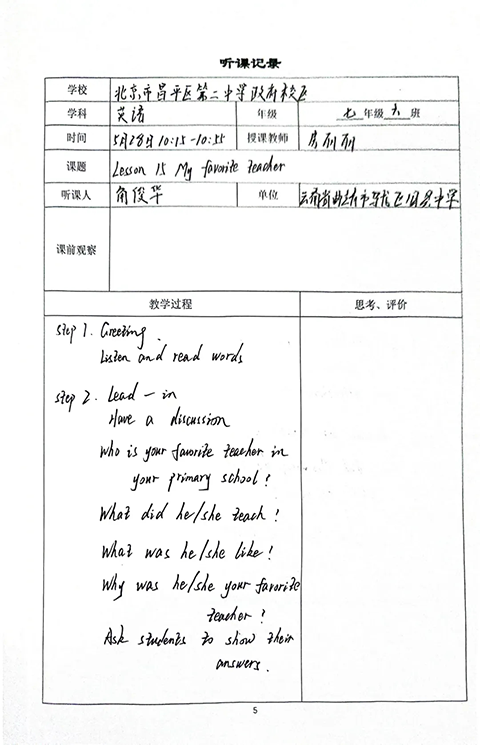 听课记录
学校 北京市昌平区第二中学政府校区
学科 英语 年级 七 年级 六 班
时间 5月28日 10:15-10:55 授课教师 房丽丽
课题 Lesson 15 My favorite teacher
听课人 俊华 单位 云南省曲靖市马龙区 中学
课前观察
教学过程 思考、评价
Step 1. Greeting.
Listen and read words
Step 2. Lead - in
Have a discussion
Who is your favorite teacher in
your primary school?
What did he/she teach?
What was he/she like?
Why was he/she your favorite
teacher?
Ask students to show their
answers.
5